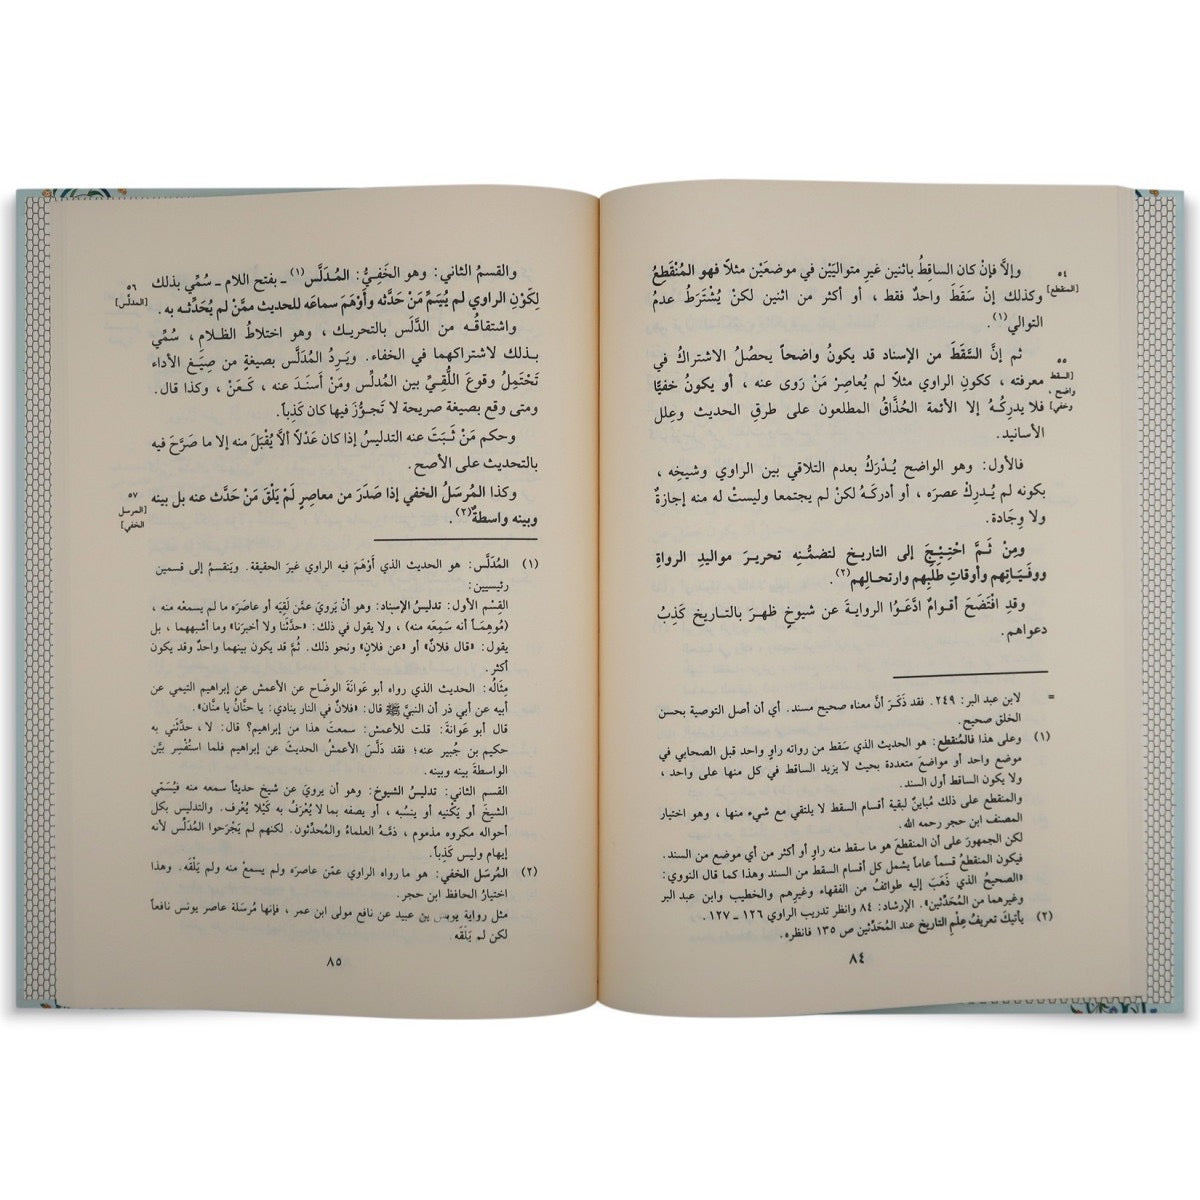 وإلاَّ فإنْ كان الساقِطُ باثنين غيرِ متواليَيْن في موضعَيْن مثلاً فهو المُنْقَطِعُ
٥٤
[المنقطع]
وكذلك إنْ سَقَطَ واحدٌ فقط ، أو أكثر من اثنين لكنْ يُشْتَرَطُ عدمُ
التوالي(١).
ثم إنَّ السَّقَطَ من الإسناد قد يكونُ واضحاً يحصُلُ الاشتراكُ في
٥٥
[السقط
واضح ،
وخفي]
معرفته ، ككونِ الراوي مثلاً لم يُعاصِرْ مَنْ رَوى عنه ، أو يكونُ خفيًّا
فلا يدرِكُـهُ إلا الأئمة الحُذَّاقُ المطلعون على طرقِ الحديث وعِلل
الأسانيد.
فالأول: وهو الواضح يُـدْرَكُ بعدم التلاقي بين الراوي وشيخِه ،
بكونه لم يُـدرِكْ عصرَه ، أو أدركَـهُ لكنْ لم يجتمعا وليستْ له منه إجازةٌ
ولا وِجَادة.
ومِنْ ثَـمَّ احْتِيْـجَ إلى التاريخ لتضمُّنِه تحريرَ مواليدِ الرواةِ
ووفَـيَاتِهم وأوقاتِ طلَبِهم وارتحالِهم(٢).
وقدِ افْتَضَحَ أقـوامٌ ادَّعَوُا الروايـةَ عن شيوخٍ ظهرَ بالتـاريخ كَذِبُ
دعواهم.
= لابن عبد البر: ٢٤٩. فقد ذَكَرَ أنَّ معناه صحيح مسند. أي أن أصل التوصية بحسن
الخلق صحيح.
(١) وعلى هذا فالمُنْقطِع: هو الحديث الذي سَقط من رواته راوٍ واحد قبل الصحابي في
موضع واحد أو مواضعَ متعددة بحيث لا يزيد الساقط في كل منها على واحد ،
ولا يكون الساقط أول السند.
والمنقطع على ذلك مُباينٌ لبقية أقسام السقط لا يلتقي مع شيء منها ، وهو اختيار
المصنف ابن حجر رحمه الله.
لكن الجمهورَ على أن المنقطعَ هو ما سقط منه راوٍ أو أكثر من أي موضع من السند.
فيكون المنقطعُ قسماً عاماً يشمل كل أقسام السقط من السند وهذا كما قال النووي:
«الصحيحُ الذي ذَهَبَ إليه طوائفُ من الفقهاء وغيرِهم والخطيب وابن عبد البر
وغيرهما من المُحَدِّثين». الإرشاد: ٨٤ وانظر تدريب الراوي ١٢٦ ـ ١٢٧.
(٢) يأتيكَ تعريفُ عِلْمِ التاريخ عند المُحَدِّثين ص ١٣٥ فانظره.
٨٤
والقسمُ الثاني: وهو الخَفِيُّ: المُدَلَّس(١) ـ بفتح اللام ـ سُمِّي بذلك
٥٦
[المدلَّس]
لِكَوْنِ الراوي لم يُسَمِّ مَنْ حَدَّثه وأَوْهَمَ سماعَه للحديث ممَّنْ لم يُحَدِّثـه به.
واشتقاقُـه من الدَّلَس بالتحريك ، وهو اختلاطُ الظـلامِ ، سُمِّي
بـذلك لاشتراكهما في الخفاء. ويَـرِدُ المُدَلَّس بصيغةٍ من صِيَـغِ الأداء
تَحْتَمِلُ وقوعَ اللُّقِيِّ بين المُدلِّس ومَنْ أَسنَـدَ عنه ، كـعَنْ ، وكذا قال.
ومتى وقع بصيغة صريحة لا تَجوُّزَ فيها كان كَذِباً.
وحكم مَنْ ثَـبَتَ عنه التدليسُ إذا كان عَدْلاً ألاَّ يُقْبَلَ منه إلا ما صَرَّحَ فيه
بالتحديث على الأصح.
وكذا المُرسَلُ الخفي إذا صَدَرَ من معاصِرٍ لَمْ يَلْقَ مَنْ حَدَّث عنه بل بينه
٥٧
[المرسل
الخفي]
وبينه واسطةٌ(٢).
(١) المُدَلَّس: هو الحديث الذي أَوْهَمَ فيه الراوي غيرَ الحقيقة. ويَنقسمُ إلى قسمين
رئيسيين:
القِسْم الأول: تدليسُ الإسناد: وهو أنْ يَرويَ عمَّن لَقِيَه أو عاصَرَه ما لم يسمعْه منه ،
(مُوهِمـاً أنه سَمِعَه منه) ، ولا يقول في ذلك: «حدَّثنا ولا أخبرَنا» وما أشبههما ، بل
يقول: «قال فلانٌ» أو «عن فلانٍ» ونحو ذلك. ثُمَّ قد يكون بينهما واحدٌ وقد يكون
أكثر.
مِثَالُه: الحديث الذي رواه أبو عَوَانَةَ الوضَّاح عن الأعمش عن إبراهيم التيمي عن
أبيه عن أبي ذر أن النبيَّ ﷺ قال: «فلانٌ في النار ينادي: يا حنَّانُ يا منَّان».
قال أبو عَوَانَة: قلت للأعمش: سمعتَ هذا من إبراهيم؟ قال: لا ، حدَّثني به
حكيم بن جُبير عنه؛ فقد دَلَّس الأعمشُ الحديثَ عن إبراهيم فلما استُفْسِر بيَّن
الواسطةَ بينه وبينه.
القسم الثاني: تدليسُ الشيوخ: وهو أن يرويَ عن شيخ حديثاً سمعه منه فيُسَمِّي
الشيخَ أو يُكَنِّيه أو ينسُبه ، أو يصفه بما لا يُعْرَفُ به كَيْلا يُعْرف. والتدليس بكل
أحواله مكروه مذموم ، ذمَّـهُ العلماءُ والمُحدِّثون. لكنهم لم يَجْرَحوا المُدَلِّس لأنه
إيهام وليس كَذِباً.
(٢) المُرسَل الخفي: هو ما رواه الراوي عمّن عاصرَه ولم يسمعْ منه ولم يَلْقَه. وهذا
اختيارُ الحافظ ابن حجر.
مثل رواية يونس بن عبيد عن نافع مولى ابن عمر ، فإنها مُرسَلة عاصر يونس نافعاً
لكن لم يَلْقَه.
٨٥